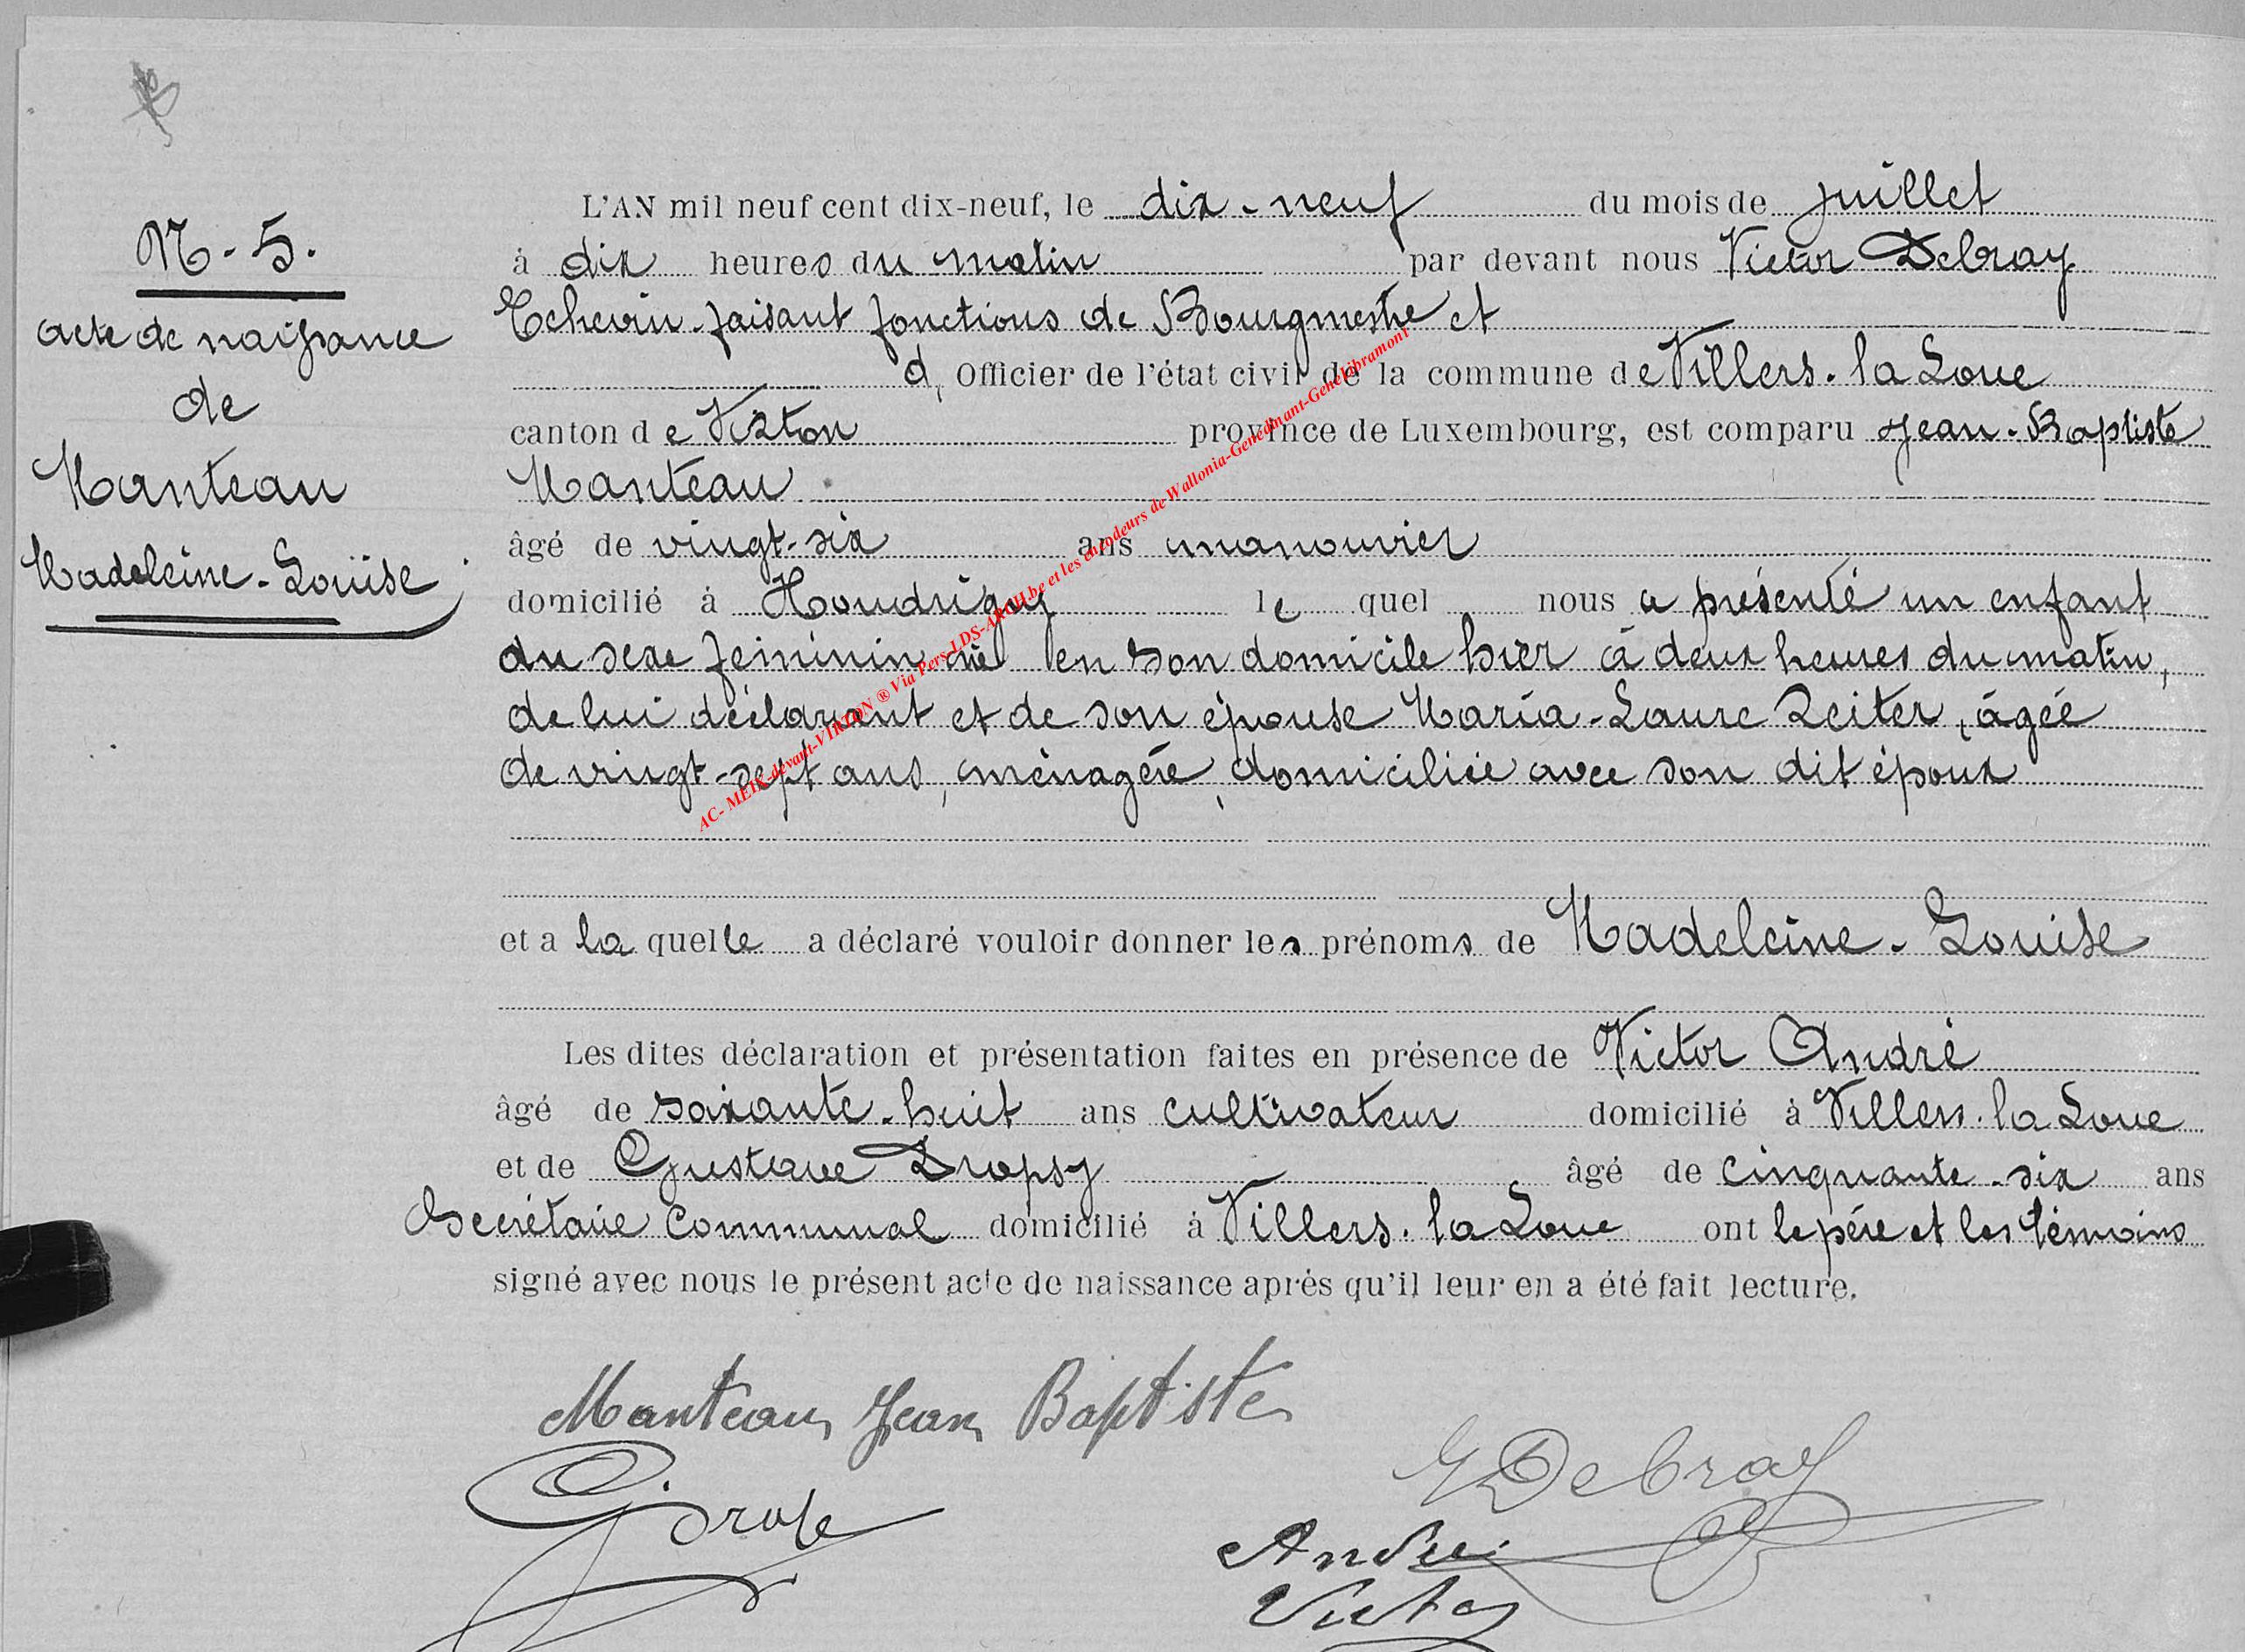 N-5.
acte de naissance
de
Manteau
Madeleine-Louise
L'AN mil neuf cent dix-neuf, le dix-neuf du mois de juillet
à dix heures du matin par devant nous Victor Debray
Echevin faisant fonctions de Bourgmestre et
d, Officier de l'état civil de la commune de Villers-la Loue
canton de Virton province de Luxembourg, est comparu Jean-Baptiste
Manteau
âgé de vingt-six ans manouvrier
domicilié à Houdrigny le quel nous a présenté un enfant
du sexe feminin né en son domicile hier à deux heures du matin,
de lui déclarant et de son épouse Maria-Laure Reiter, âgée
de vingt-sept ans, ménagère, domiciliée avec son dit époux
et a la quelle a déclaré vouloir donner les prénoms de Madeleine-Louise
Les dites déclaration et présentation faites en présence de Victor André
âgé de soixante-huit ans cultivateur domicilié à Villers-la Loue
et de Gustave Dropsy âgé de cinquante-six ans
Secrétaire Communal domicilié à Villers-la Loue ont le père et les témoins
signé avec nous le présent acte de naissance après qu'il leur en a été fait lecture.
Manteau Jean Baptiste
Debray
André
Victor
AC- MEIX-devant-VIRTON ® Via Pers-LDS-ARCH.be et les encodeurs de Wallonia-Genedinant-Genelibramont